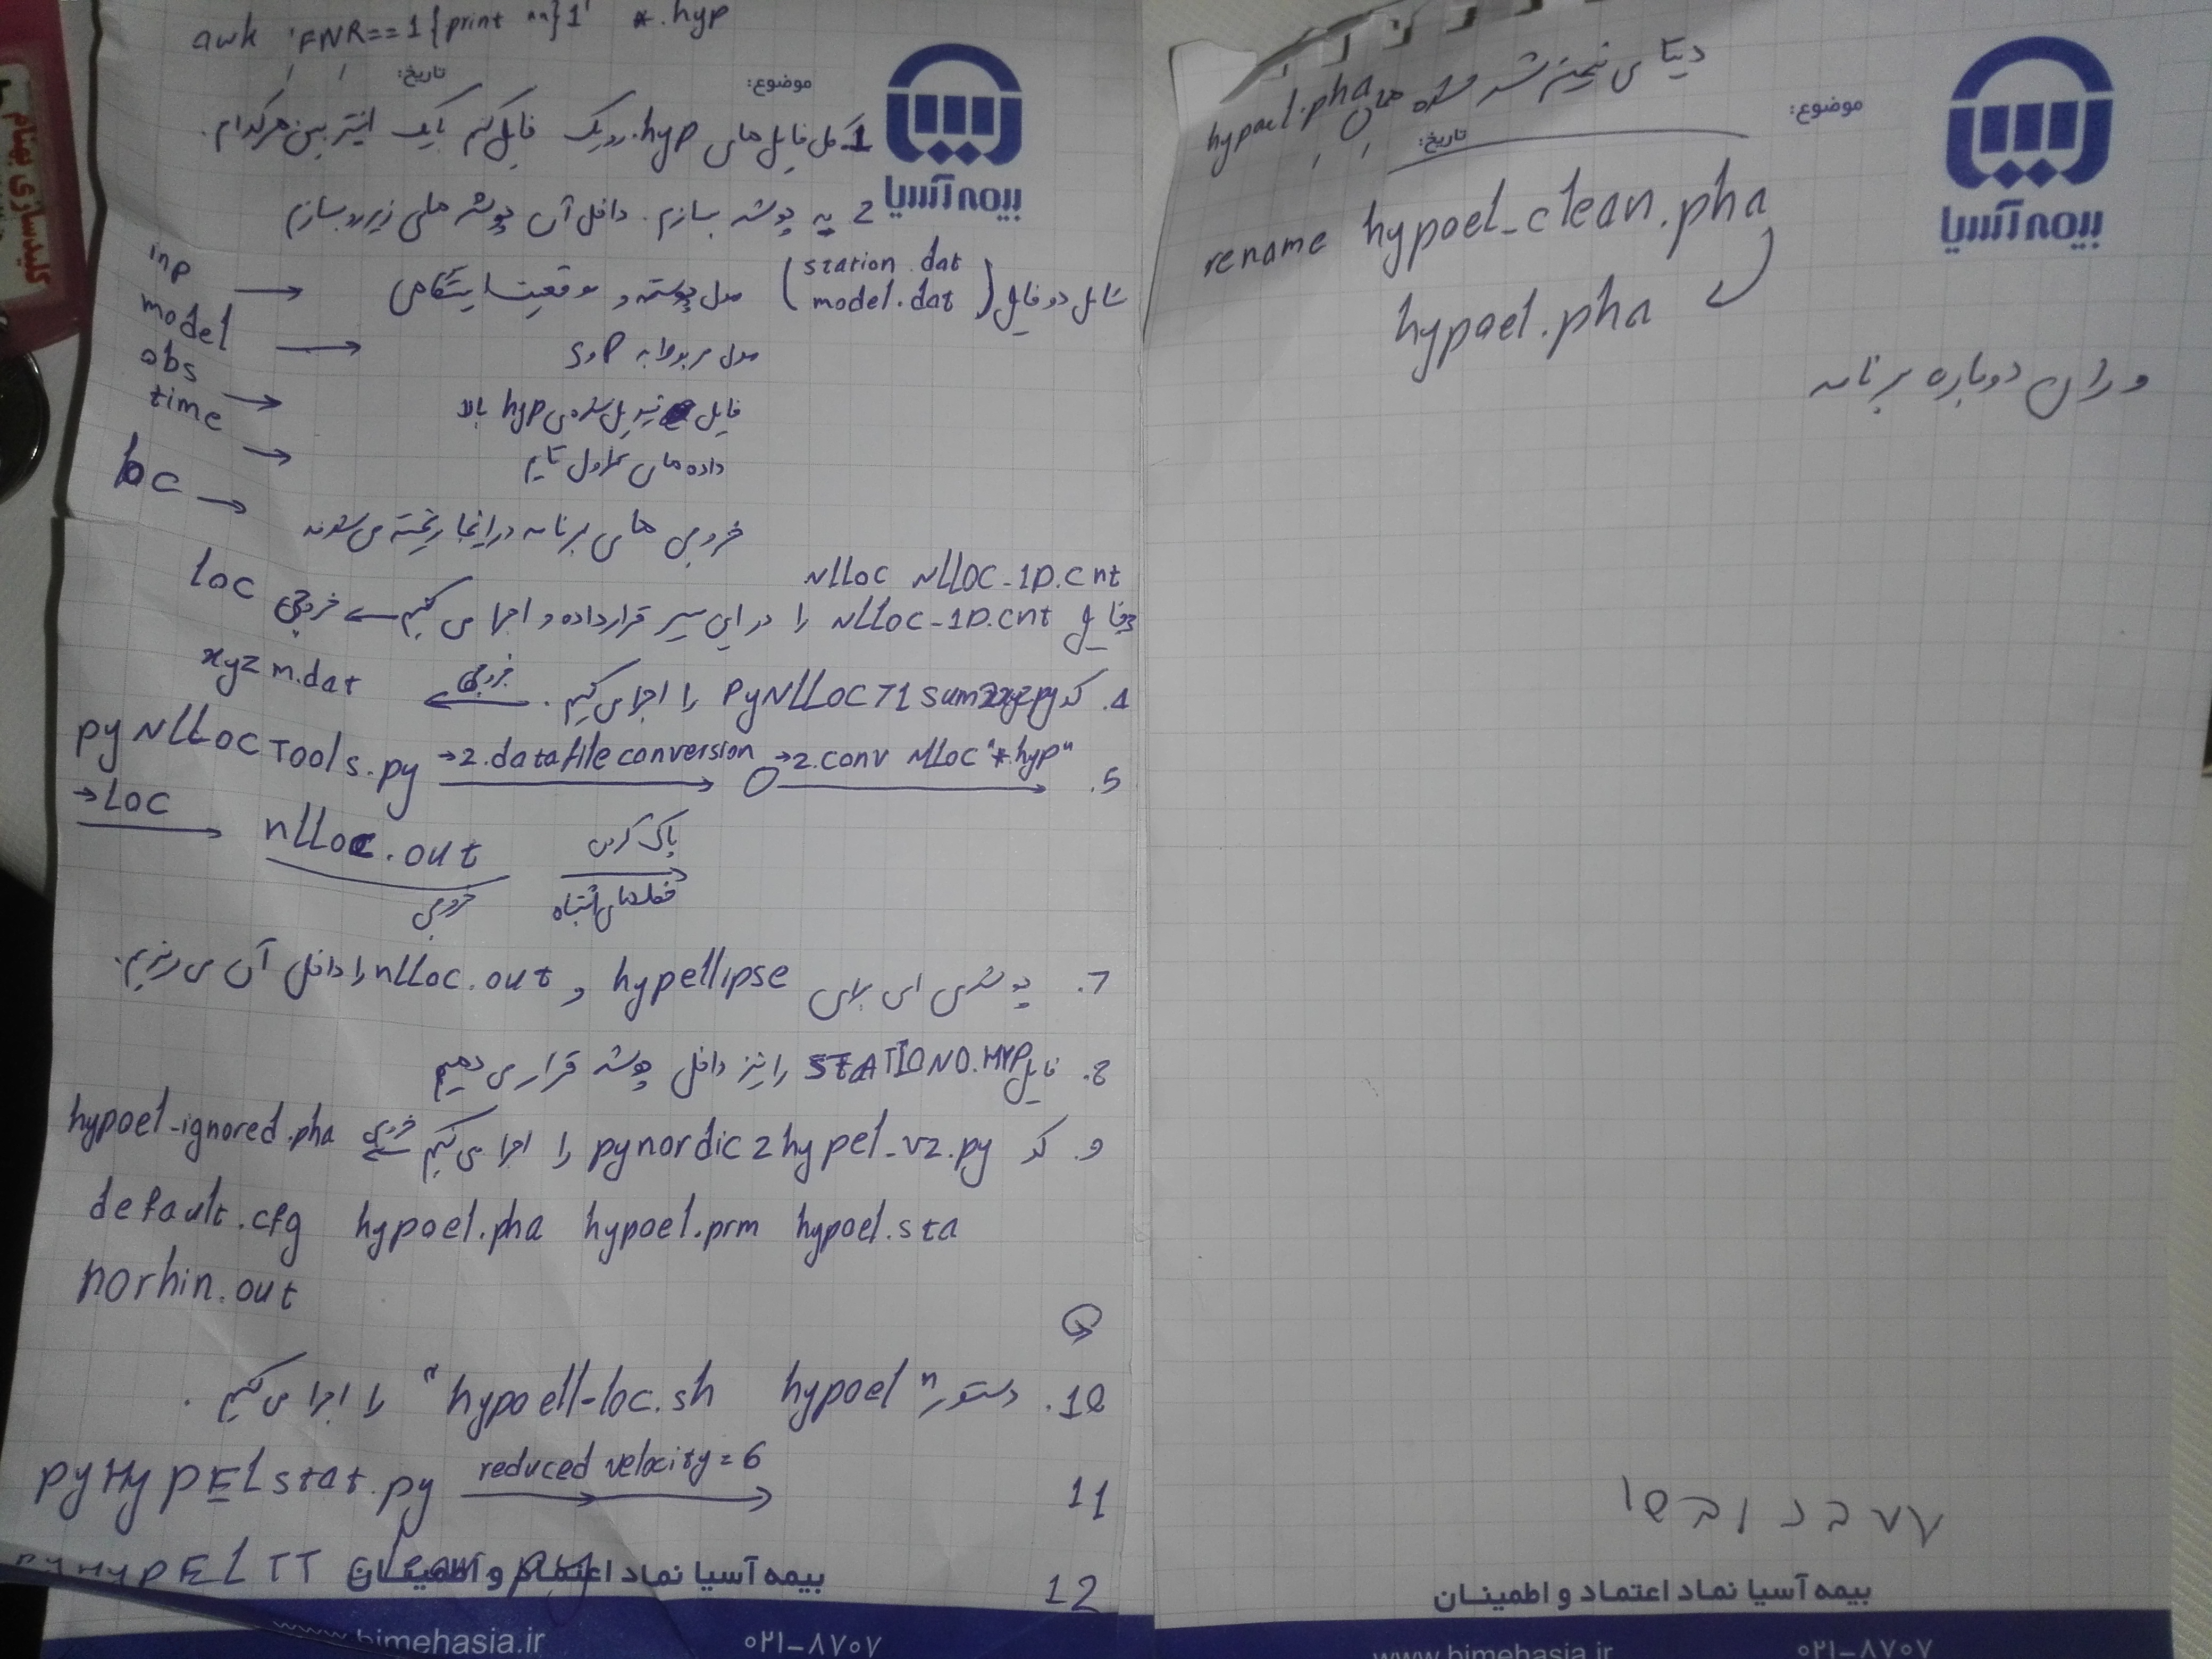 awk 'FNR==1{print ""}1' *.hyp
موضوع:
تاریخ:
بیمه آسیا
1 کل فایل‌های hyp. رو یک فایل کنم با یک اینتر بین هرکدام.
2 یه پوشه بسازم. داخل آن پوشه های زیر رو بسازم
inp → شامل دو فایل (station.dat model.dat) مدل پوسته و موقعیت ایستگاهی
model → مدل مربوط به P و S
obs → فایل تبدیل شده‌ی hyp بالا
time → داده های تراول تایم
loc → خروجی های برنامه در اینجا ریخته می‌شوند
NLLoc NLLOC-1D.cnt
3 فایل NLLoc-1D.cnt را در این مسیر قرار داده و اجرا می کنیم خروجی loc
4. کد PyNLLOC71sum2xyz.py را اجرا می کنیم. خروجی xyzm.dat
5. pyNLLOCTools.py →2.datafile conversion →2.conv NLLoc "*.hyp"
→LOC nlloc.out خروجی پاک کردن خط‌های اشتباه
7. پوشه‌ی ای برای hypellipse و nlloc.out را داخل آن می ریزیم.
8. فایل STATION0.HYP را نیز داخل پوشه قرار می دهیم
9. کد pynordic2hypel_v2.py را اجرا می کنیم خروجی hypoel-ignored.pha
default.cfg hypoel.pha hypoel.prm hypoel.sta
norhin.out
10. دستور "hypoell-loc.sh hypoel" را اجرا می کنیم.
11 pyHypELstat.py reduced velocity=6
12 PYHYPELTT clean.py
بیمه آسیا نماد اعتماد و اطمینان
www.bimehasia.ir
۰۲۱-۸۷۰۷
دیتا ی تمیز شده ی hypoel.pha
موضوع:
تاریخ:
بیمه آسیا
rename hypoel_clean.pha
hypoel.pha
و ران دوباره برنامه
بیمه آسیا نماد اعتماد و اطمینان
www.bimehasia.ir
۰۲۱-۸۷۰۷